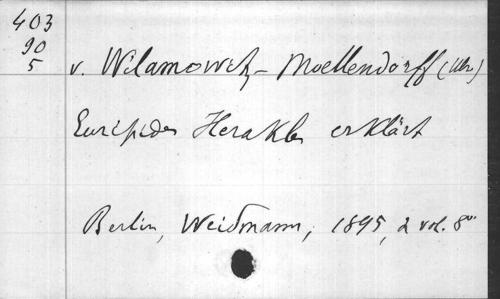 403
90
5
v. Wilamowitz-Moellendorff (Ulr.)
Euripides Herakles erklärt
Berlin, Weidmann, 1895, 2 vol. 8°